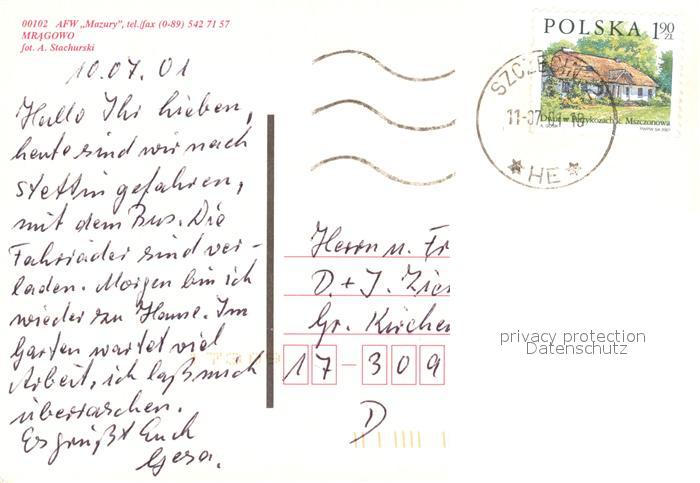 00102 AFW „Mazury", tel./fax (0-89) 542 71 57
MRĄGOWO
fot. A. Stachurski
10.07.01
Hallo Ihr Lieben,
heute sind wir nach
Stettin gefahren,
mit dem Bus. Die
Fahrräder sind ver-
laden. Morgen bin ich
wieder zu Hause. Im
Garten wartet viel
Arbeit, ich laß mich
überraschen.
Es grüßt Euch
Gesa.
POLSKA 1,90
ZŁ
Dwór w Petrykozach k. Mszczonowa
SZCZECIN
11-07
★ HE ★
Herrn u. Fr
D. + J.
Gr. Kirchen
17-309
D
privacy protection
Datenschutz